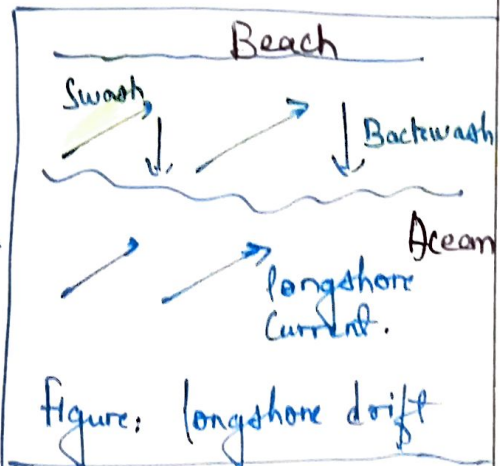 Beach
Swash
Backwash
Ocean
longshore
Current.
Figure: longshore drift